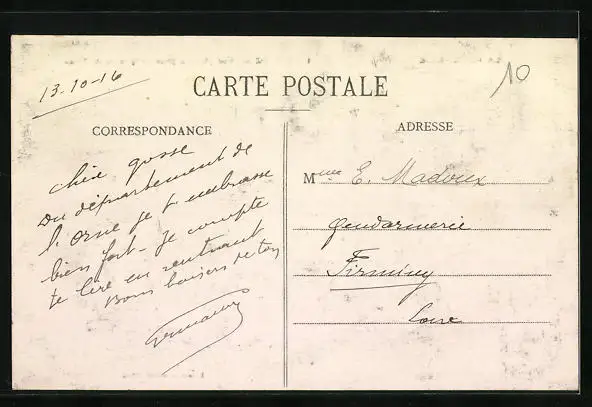 13-10-16
10
CARTE POSTALE
CORRESPONDANCE
chère gosse
Du département de
l'Orne je t'embrasse
bien fort - je compte
te lire en rentrant
Bons baisers de ton
ADRESSE
Mme E. Madoux
Gendarmerie
Firminy
Loire